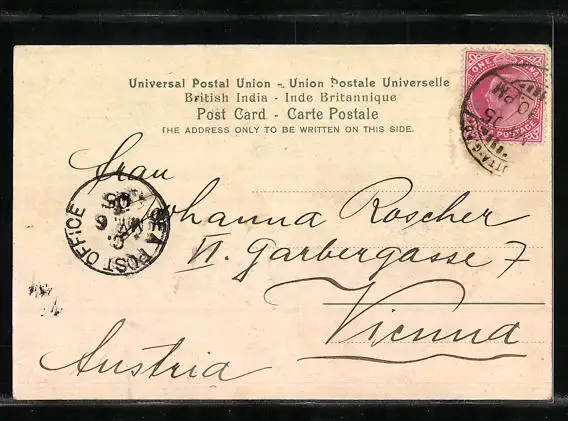 Universal Postal Union - Union Postale Universelle
British India - Inde Britannique
Post Card - Carte Postale
THE ADDRESS ONLY TO BE WRITTEN ON THIS SIDE.
ONE
POSTAGE
PM
SEA POST OFFICE
Frau
Johanna Roscher
VI. Garbergasse 7
Vienna
Austria